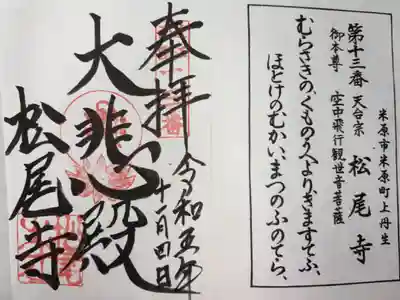 米原市米原町上丹生
第十三番 天台宗 松尾寺
御本尊 空中飛行観世音菩薩
むらさきの、くものうへよりきますてふ、
ほとけのむかい、まつのふのてら、
奉拝
令和五年
十一月四日
大悲殿
松尾寺